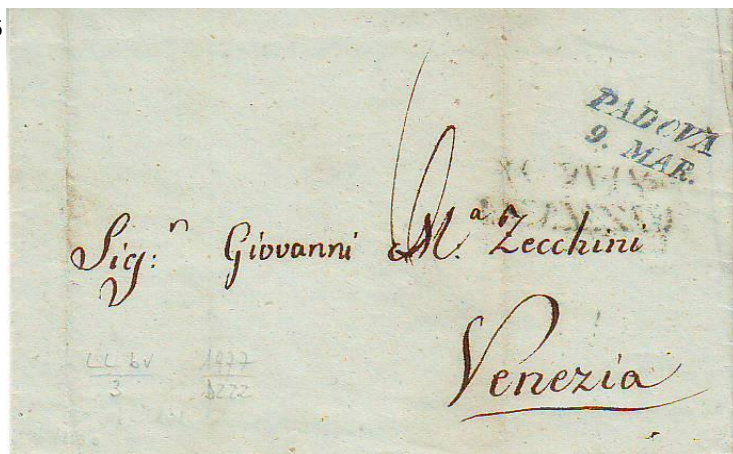 PADOVA
9. MAR.
Sig:ⁿ Giovanni M.ª Zecchini
Venezia
LL bv 1977
3 D222